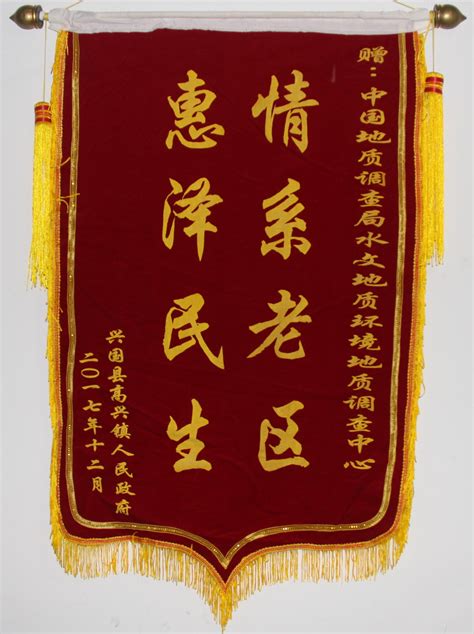 赠：中国地质调查局水文地质环境地质调查中心
情系老区
惠泽民生
兴国县高兴镇人民政府
二〇一七年十二月